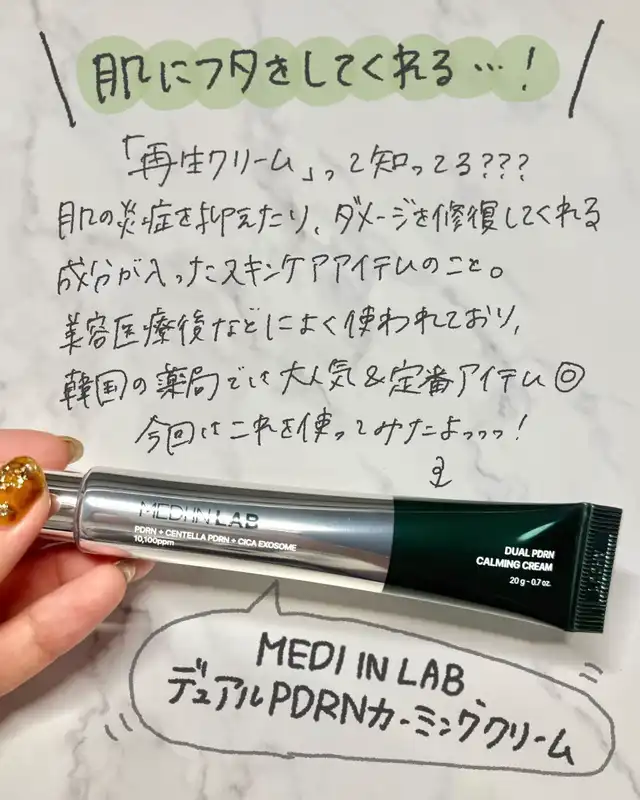 肌にフタをしてくれる…!
「再生クリーム」って知ってる???
肌の炎症を抑えたり、ダメージを修復してくれる
成分が入ったスキンケアアイテムのこと。
美容医療後などによく使われており、
韓国の薬局では大人気&定番アイテム◎
今回はこれを使ってみたよっっっ!
MEDI IN LAB
PDRN + CENTELLA PDRN + CICA EXOSOME
10,100ppm
DUAL PDRN
CALMING CREAM
20 g - 0.7 oz.
MEDI IN LAB、
デュアルPDRNカーミングクリーム